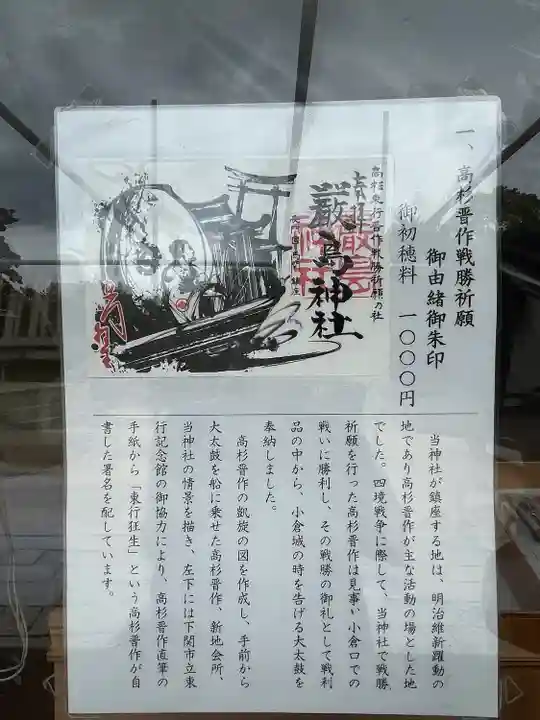 一、高杉晋作戦勝祈願
御由緒御朱印
御初穂料　一〇〇〇円
高杉東行晋作戦勝祈願の社
厳島神社
当神社が鎮座する地は、明治維新羅動の
地であり高杉晋作が主な活動の場とした地
でした。四境戦争に際して、当神社で戦勝
祈願を行った高杉晋作は見事小倉口での
戦いに勝利し、その戦勝の御礼として戦利
品の中から、小倉城の時を告げる大太鼓を
奉納しました。
高杉晋作の凱旋の図を作成し、手前から
大太鼓を船に乗せた高杉晋作、新地会所、
当神社の情景を描き、左下には下関市立東
行記念館の御協力により、高杉晋作直筆の
手紙から「東行狂生」という高杉晋作が自
書した署名を配しています。